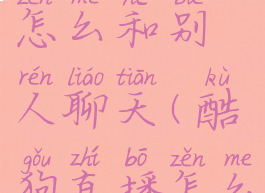 zěn me hé bié
怎么和别
rén liáo tiān kù
人聊天(酷
gǒu zhí bō zěn me
狗直播怎么